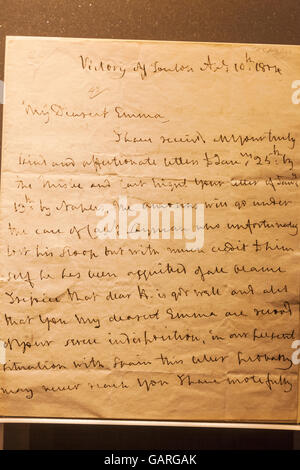 Victory off Toulon Apl: 10th: 1804
My Dearest Emma
I have receiv'd all your truly
kind and affectionate letters to Jany: 25th: by
the Thisbe and last night your letter of Jany:
19th: by Naples. The will go under
the care of Capt: Layman who unfortunately
lost his sloop but with much credit to him
self he has been acquitted of all blame
I rejoice that dear H. is got well and also
that You My dearest Emma are recovd
of your severe indisposition, in our present
situation with Spain this letter probably
may never reach You I have
alamy
GARGAK